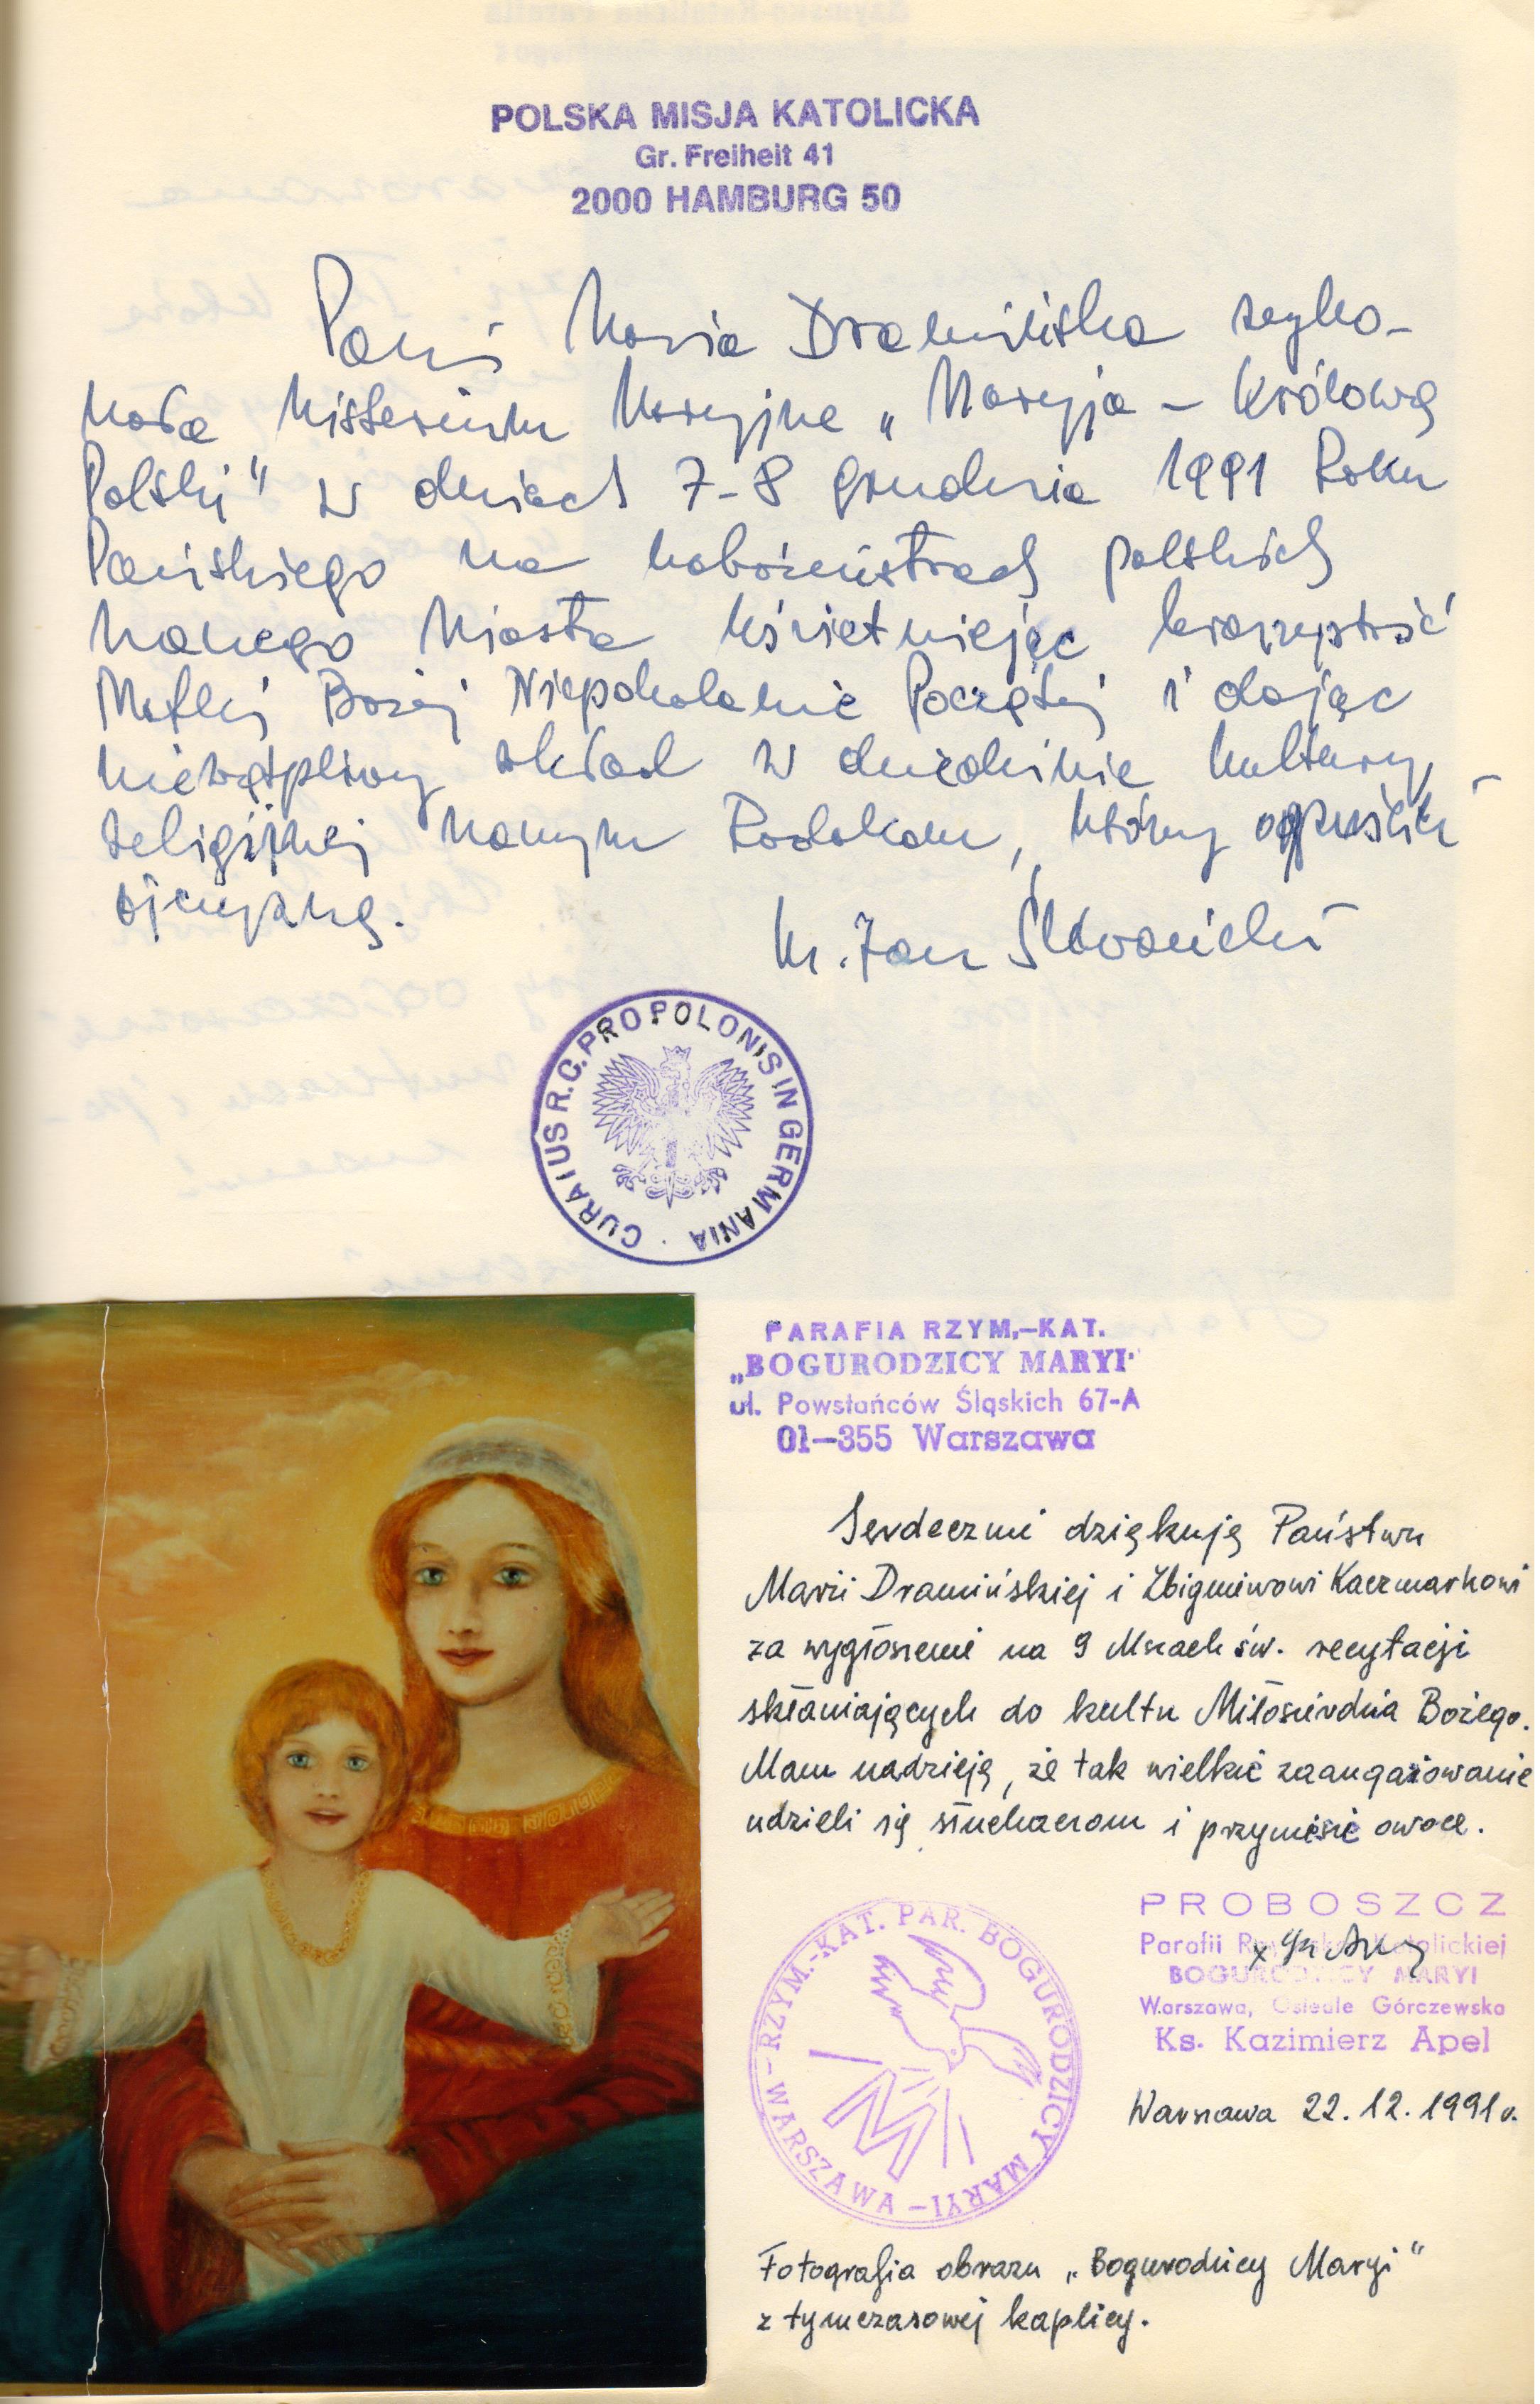 POLSKA MISJA KATOLICKA
Gr. Freiheit 41
2000 HAMBURG 50
Pani Maria Dramińska wyko-
nała Misterium Maryjne „Maryja – Królową
Polski" w dniach 7-8 grudnia 1991 Roku
Pańskiego na nabożeństwach polskich
naszego Miasta uświetniając uroczystość
Matki Bożej Niepokalanie Poczętej i dając
niewątpliwy wkład w dziedzinie kultury
religijnej naszym Rodakom, którzy opuścili
ojczyznę.
Ks. Jan Śliwański
CURATUS R.C. PRO POLONIS IN GERMANIA
PARAFIA RZYM.-KAT.
„BOGURODZICY MARYI"
ul. Powstańców Śląskich 67-A
01-355 Warszawa
Serdecznie dziękuję Państwu
Marii Dramińskiej i Zbigniewowi Kaczmarkowi
za wygłoszenie na 9 Mszach św. recytacji
skłaniających do kultu Miłosierdzia Bożego.
Mam nadzieję, że tak wielkie zaangażowanie
udzieli się słuchaczom i przyniesie owoce.
RZYM.-KAT. PAR. BOGURODZICY MARYI – WARSZAWA –
M
PROBOSZCZ
Parafii Rzymsko-Katolickiej
BOGURODZICY MARYI
Warszawa, Osiedle Górczewska
Ks. Kazimierz Apel
Warszawa 22.12.1991 r.
Fotografia obrazu „Bogurodzicy Maryi"
z tymczasowej kaplicy.